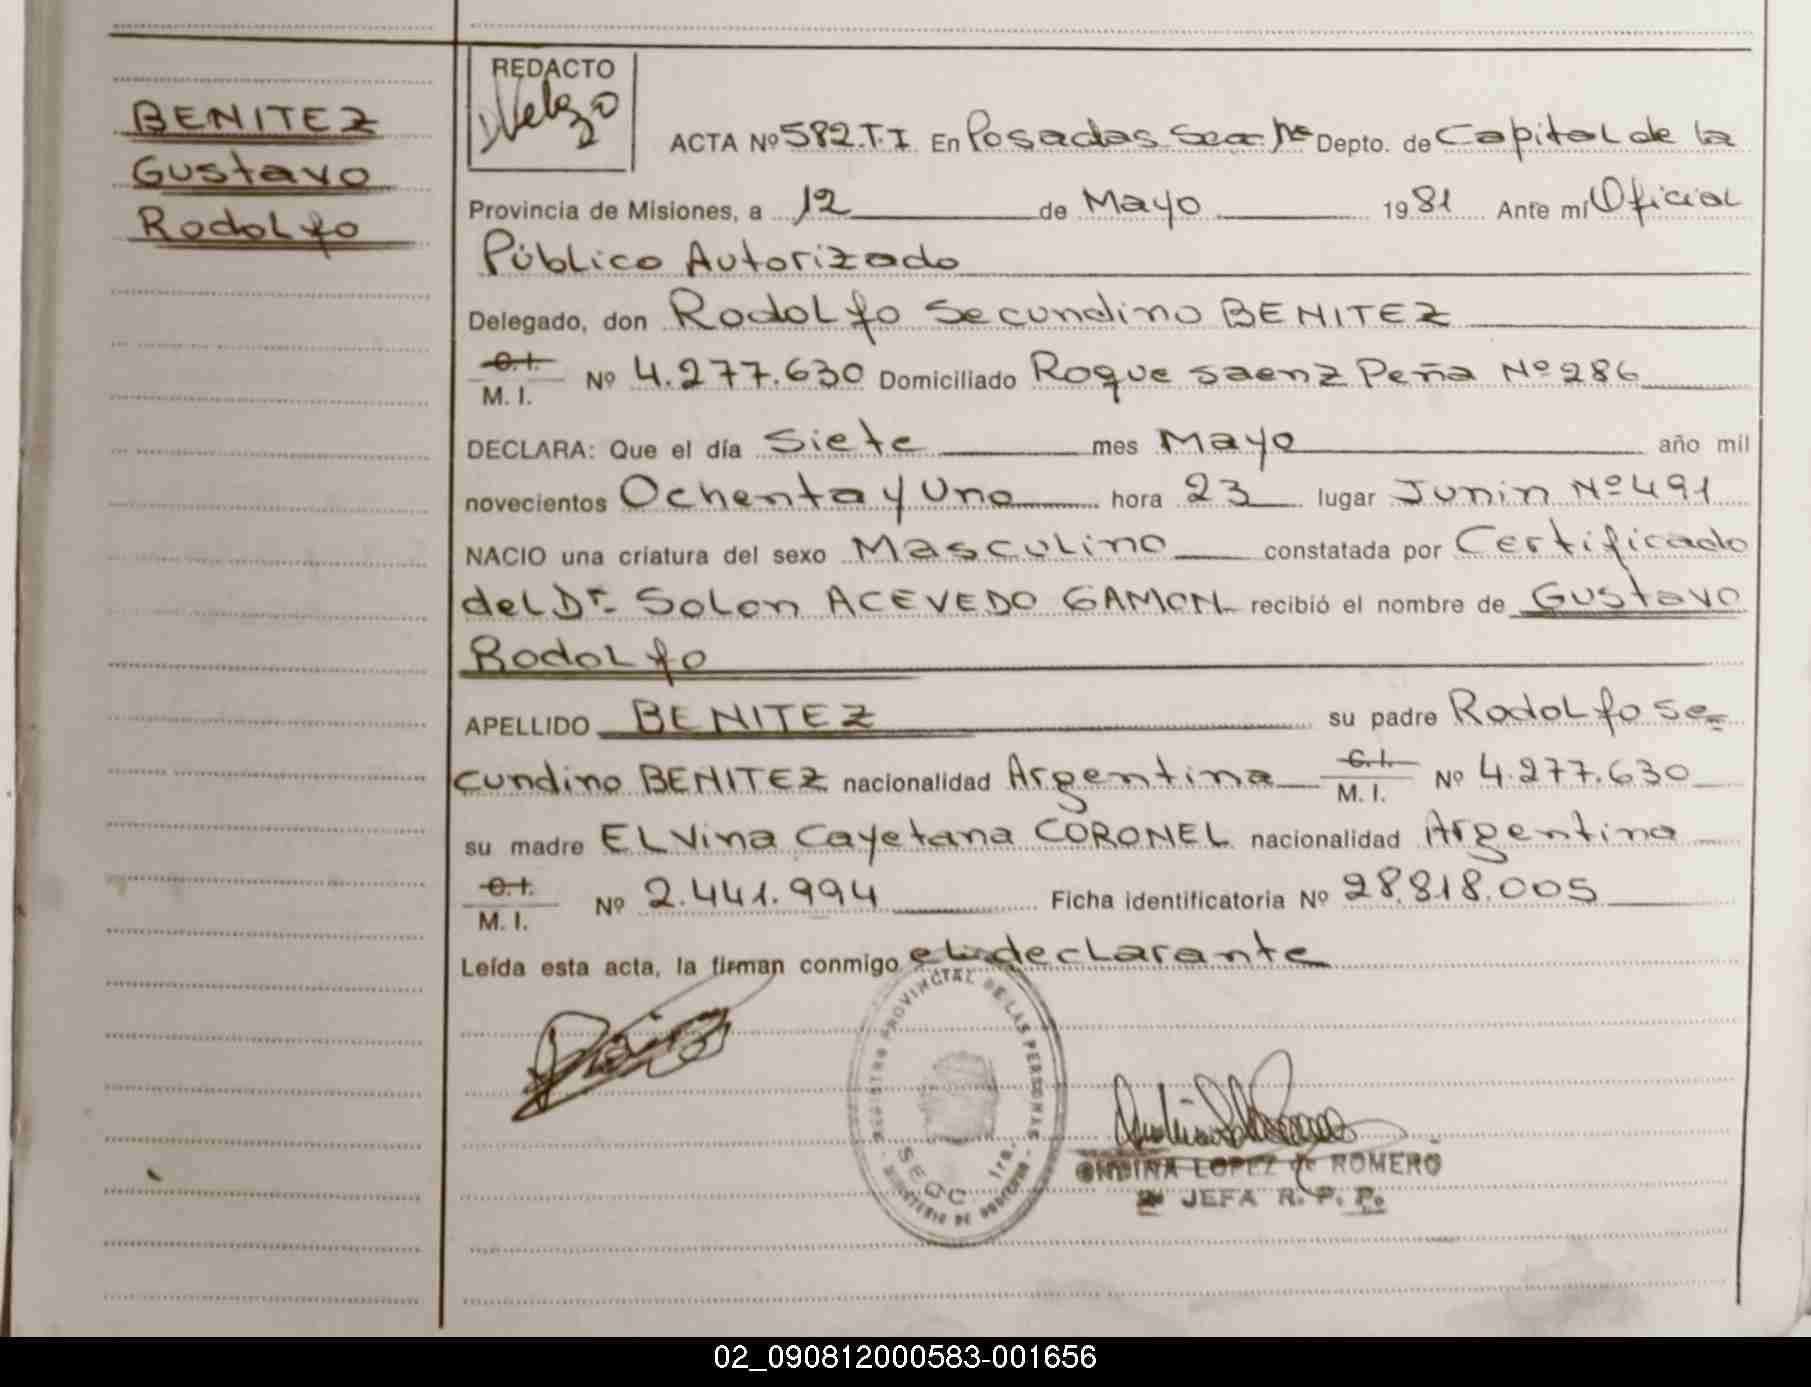 BENITEZ
Gustavo
Rodolfo
REDACTO
ACTA Nº 582.T.I. En Posadas Secc 1ra Depto. de Capital de la
Provincia de Misiones, a 12 de Mayo 1981 Ante mí Oficial
Público Autorizado
Delegado, don Rodolfo Secundino BENITEZ
C.I.
M. I. Nº 4.277.630 Domiciliado Roque Saenz Peña Nº 286
DECLARA: Que el día Siete mes Mayo año mil
novecientos Ochenta y Uno hora 23 lugar Junin Nº 491
NACIO una criatura del sexo Masculino constatada por Certificado
del Dr. Solon ACEVEDO GAMON recibió el nombre de Gustavo
Rodolfo
APELLIDO BENITEZ su padre Rodolfo Se=
cundino BENITEZ nacionalidad Argentina C.I.
M. I. Nº 4.277.630
su madre ELVina Cayetana CORONEL nacionalidad Argentina
C.I.
M. I. Nº 2.441.994 Ficha identificatoria Nº 28.818.005
Leída esta acta, la firman conmigo el declarante
REGISTRO PROVINCIAL DE LAS PERSONAS
SECC 1ra.
- MINISTERIO DE GOBIERNO -
ONDINA LOPEZ de ROMERO
JEFA R. P. P.
02_090812000583-001656